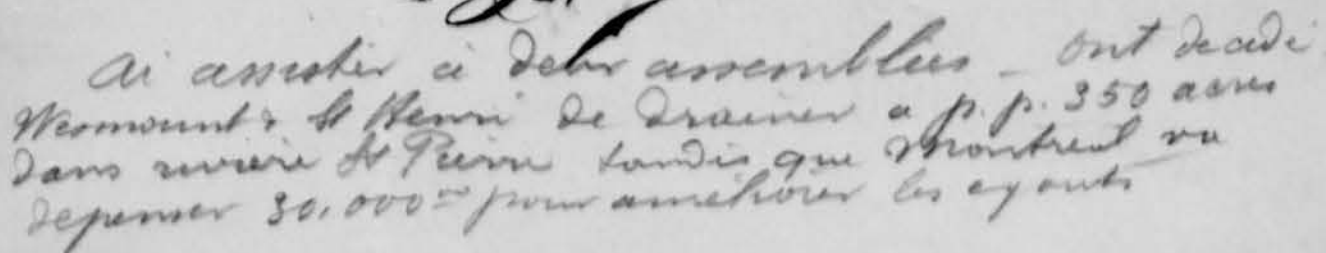 Ai assister à deux assemblées - ont decidé
Wesmount & St Henri de drainer a p. p. 350 acres
dans riviere St Pierre tandis que Montreal va
depenser 30,000 pour améliorer les egouts